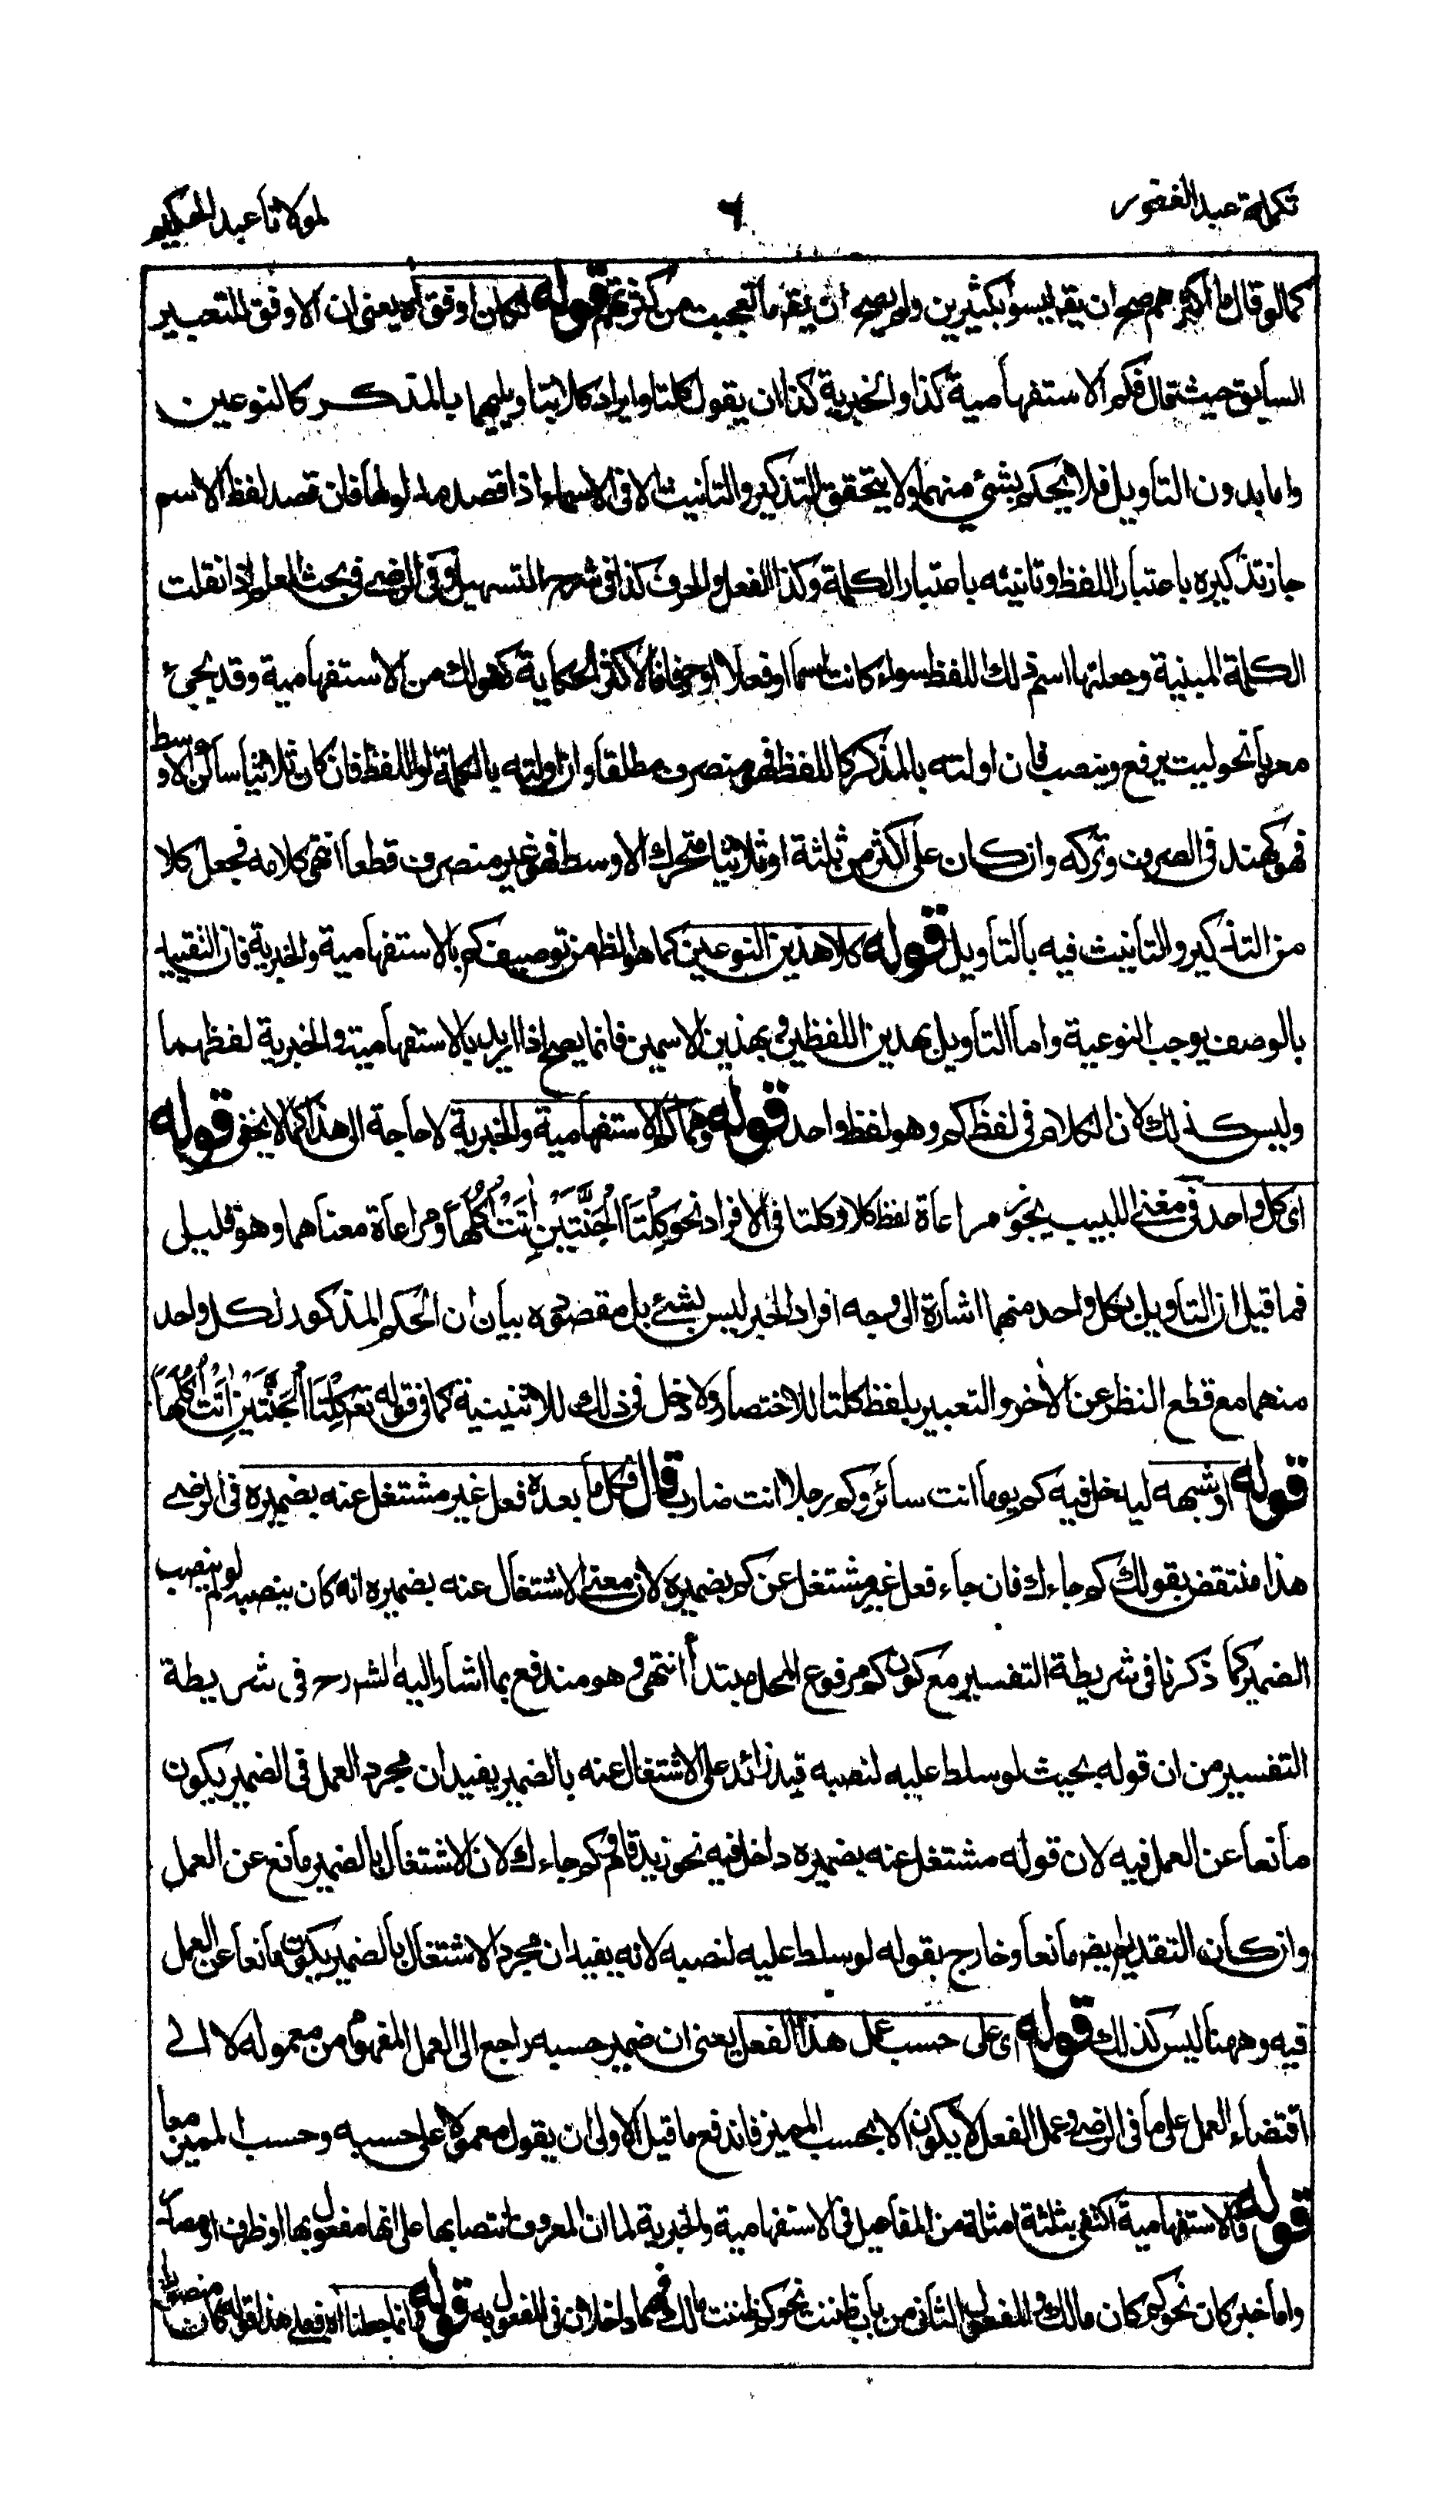 تكملة عبد الغفور
٦
لمولانا عبد الحكيم
كما لو قال ما اكثرهم صح ان يقر ليسوا بكثيرين ولم يصح ان يقر ما تعجبت من كثرتهم قوله لكان اوفق اه يعنى ان الاوفق للتعبير
السابق حيث قال فكم الاستفهامية كذا والخبرية كذا ان يقول كلتا وايراد كلا بتاويليهما بالمذكر كالنوعين
واما بدون التأويل فلا يحكم بشئ منهما ولا يتحقق التذكير والتأنيث الا فى الاسماء اذا قصد مدلولها فان قصد لفظ الاسم
جاز تذكيره باعتبار اللفظ وتانيثه باعتبار الكلمة وكذا الفعل والحرف كذا فى شرح التسهيل وفى الرضى فى بحث العلم اذا نقلت
الكلمة المبنية وجعلتها اسم ذلك اللفظ سواء كانت اسما او فعلا او حرفا فالاكثر الحكاية كقولك من الاستفهامية وقد يجئ
معربا نحو ليت يرفع وينصب فان اولته بالمذكر كاللفظ فهو منصرف مطلقا وان اولته بالكلمة او اللفظة فان كان ثلاثيا ساكن الاوسط
فهو كهند فى الصرف وتركه وان كان على اكثر من ثلثة او ثلاثيا متحرك الاوسط فهو غير منصرف قطعا انتهى كلامه فجعل كلا
من التذكير والتأنيث فيه بالتأويل قوله كلا هذين النوعين كما هو الظ من توصيف كم بالاستفهامية والخبرية فان التقييد
بالوصف يوجب النوعية واما التأويل بهدين اللفظين او بهذين الاسمين فانما يصح اذا اريد بالاستفهامية والخبرية لفظهما
وليس كذلك لان الكلام فى لفظ كم وهو لفظ واحد قوله وهما كم الاستفهامية والخبرية لا حاجة الى هذا كما لا يخفى قوله
اى كل واحد فى مغنى اللبيب يجوز مراعاة لفظ كلا وكلتا فى الافراد نحو كِلْتَا الْجَنَّتَيْنِ اٰتَتْ اُكُلَهَا ومراعاة معناهما وهو قليل
فما قيل ان التأويل بكل واحد منهما اشارة الى وجه افراد الخبر ليس بشئ بل مقصوده بيان ان الحكم المذكور لكل واحد
منهما مع قطع النظر عن الأخر والتعبير بلفظ كلتا للاختصار ولا دخل فى ذلك للاثنينية كما فى قوله تع كِلْتَا الْجَنَّتَيْنِ اٰتَتْ اُكُلَهَا
قوله او شبهه ليدخل فيه كم يوما انت سائر وكم رجلا انت ضارب قال فكل ما بعده فعل غير مشتغل عنه بضميره فى الرضى
هذا منتقض بقولك كم جاءك فان جاء فعل غير مشتغل عن كم بضميره لان معنى الاشتغال عنه بضميره انه كان ينصبه لو لم ينصب
الضمير كما ذكرنا فى شريطة التفسير مع كون كم مرفوع المحل مبتدأ انتهى وهو مندفع بما اشار اليه الشرح فى شريطة
التفسير من ان قوله بحيث لو سلط عليه لنصبه قيد زائد على الاشتغال عنه بالضمير يفيد ان مجرد العمل فى الضمير يكون
مانعا عن العمل فيه لان قوله مشتغل عنه بضميره داخل فيه نحو زيد قام وكم جاءك لان الاشتغال بالضمير مانع عن العمل
وان كان التقديم ايض مانعا وخارج بقوله لو سلط عليه لنصبه لانه يفيد ان مجرد الاشتغال بالضمير يكون مانعا عن العمل
فيه وههنا ليس كذلك قوله اى على حسب عمل هذا الفعل يعنى ان ضمير حسبه راجع الى العمل المفهوم من معموله لا الى
اقتضاء العمل على ما فى الرضى وعمل الفعل لا يكون الا بحسب المميز فاندفع ما قيل الاولى ان يقول معمولا على حسبه وحسب المميز معا
قوله فالاستفهامية اكتفى بثلثة امثلة من المفاعيل فى الاستفهامية والخبرية لما ان المعروف انتصابها على انها مفعول بها او ظرف او مصدر
واما خبر كان نحو كم كان مالك والمفعول الثانى من باب ظننت نحو كم ظننت مالك فهما داخلان فى المفعول به قوله وانما جعلنا اه فعلى هذا قوله كان منصوبا